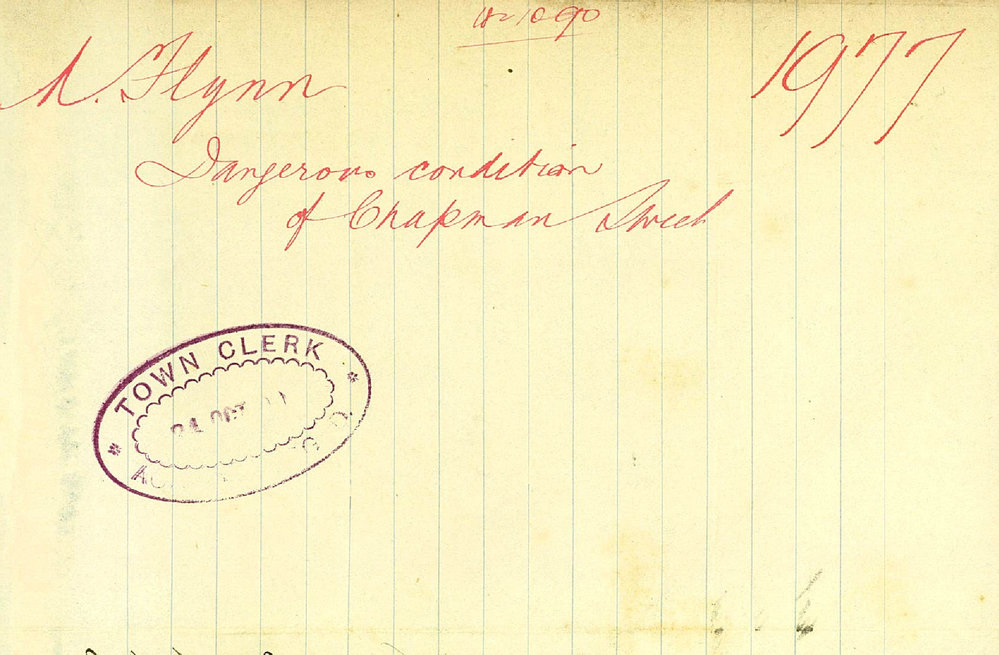 18 10 90
A. Flynn
1977
Dangerous condition
of Chapman Street
TOWN CLERK
24 OCT